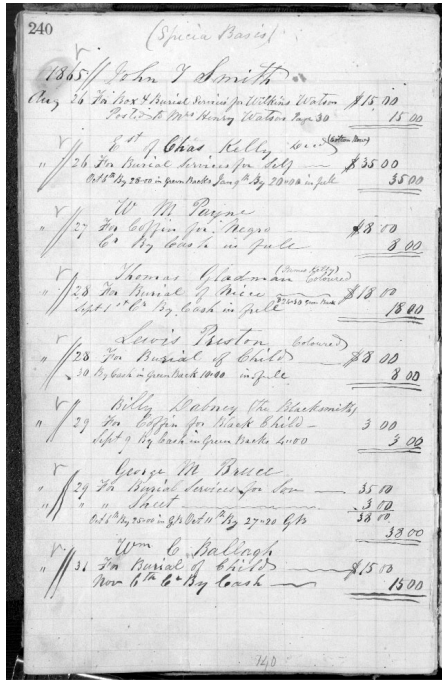 240
(Specia Basis)
1865 // John T Smith
Aug 26 For Box & Burial Services for Wilkins Watson $15.00
Posted to Mrs Henry Watson Page 30 15 00
Est of Chas Kelly
" 26 For Burial Services for Self — $35 00
Oct 5th By 28=00 in Green Backs Jan 9th By 20=00 in full 35 00
W M Payne
" 27 For Coffin for Negro — $8.00
Cr By Cash in full 8 00
Thomas Gladman Coloured
" 28 For Burial of Niece — $18 00
Sept 1st Cr By Cash in full 18 00
Lewis Preston Coloured
" 28 For Burial of Child — $8 00
30 By Cash in Green Back in full 8 00
Billy Dabney (the Blacksmith)
" 29 For Coffin for Black Child — 3 00
Sept 9 By Cash in Green Backs 4=00 3 00
George M Bruce
" 29 For Burial Services for Son — 35 00
" " " Sheet 3 00
Oct 5th By 25=00 in GB Oct 11th By 27=20 GB 38 00
38 00
Wm C Ballagh
" 31 For Burial of Child — $15 00
Nov 6th Cr By Cash — 15 00
140